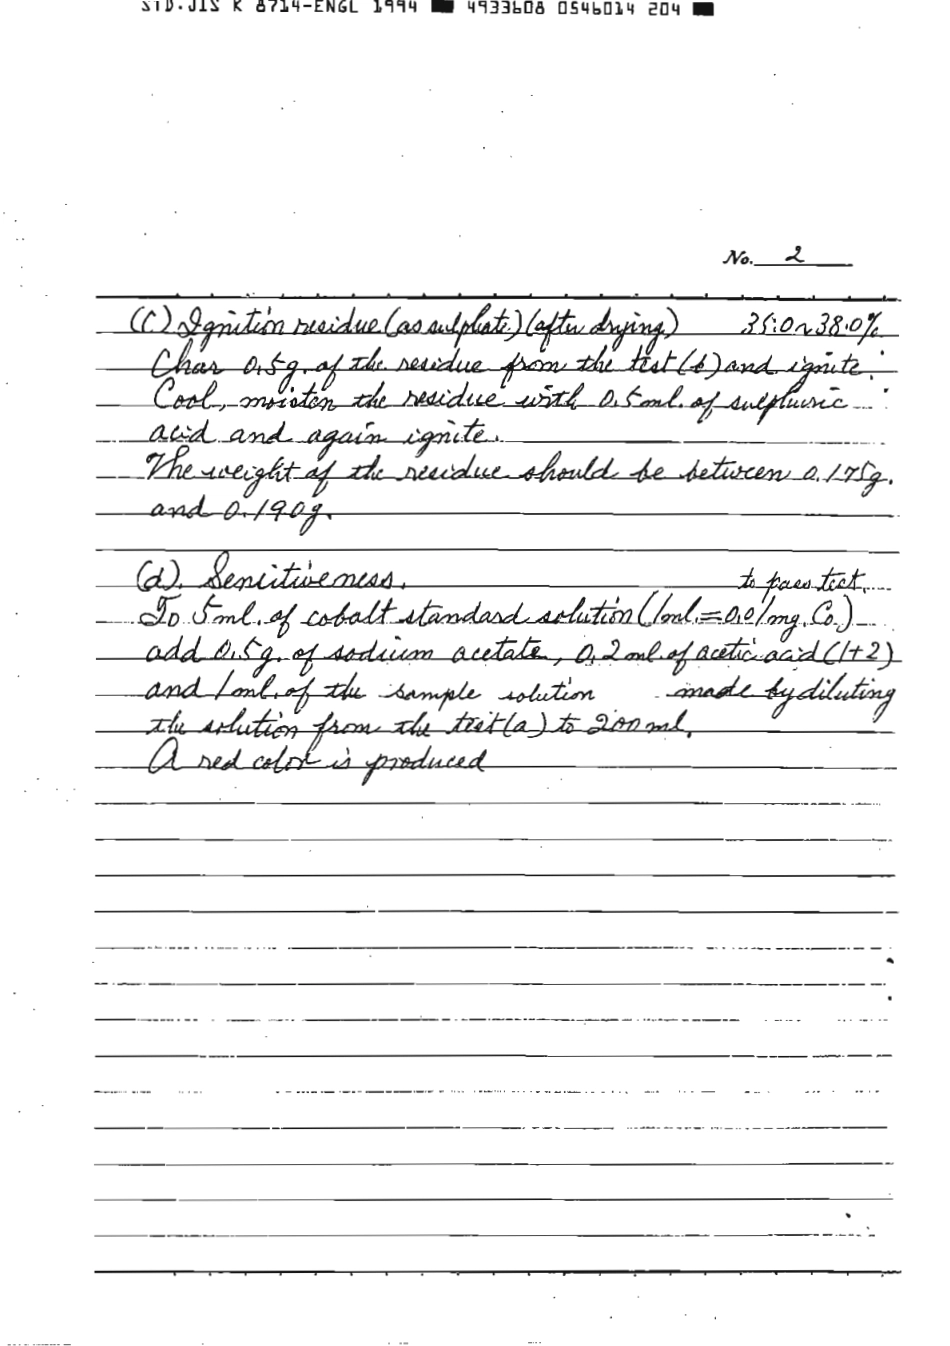 STD.JIS K 8714-ENGL 1994 ■ 4933608 0546014 204 ■
No. 2
(C) Ignition residue (as sulphate) (after drying) 35.0~38.0%
Char 0.5g. of the residue from the test (b) and ignite.
Cool, moisten the residue with 0.5ml. of sulphuric
acid and again ignite.
The weight of the residue should be between 0.175g.
and 0.190g.
(d). Sensitiveness. to pass test.
To 5ml. of cobalt standard solution (1ml.=0.01mg.Co.)
add 0.5g. of sodium acetate, 0.2ml. of acetic acid (1+2)
and 1ml. of the sample solution made by diluting
the solution from the test (a) to 200ml.
A red color is produced